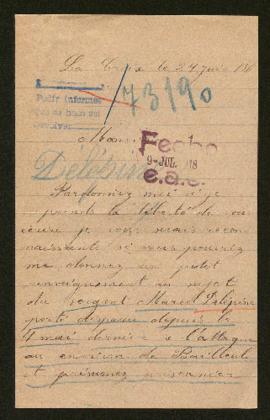 le 24 juin 18
73190
Fecho
9-JUL. 18
e.a.c.
Delépine
Pardonnez moi si je
prends la liberté de vous
écrire je vous serais recon
naissante si vous pouviez
me donner un petit
renseignement au sujet
du sergent Marcel Delépine
porté disparu depuis le
4 mai dernier à l'attaque
au environ de Bailleul
et présumez prisonnier